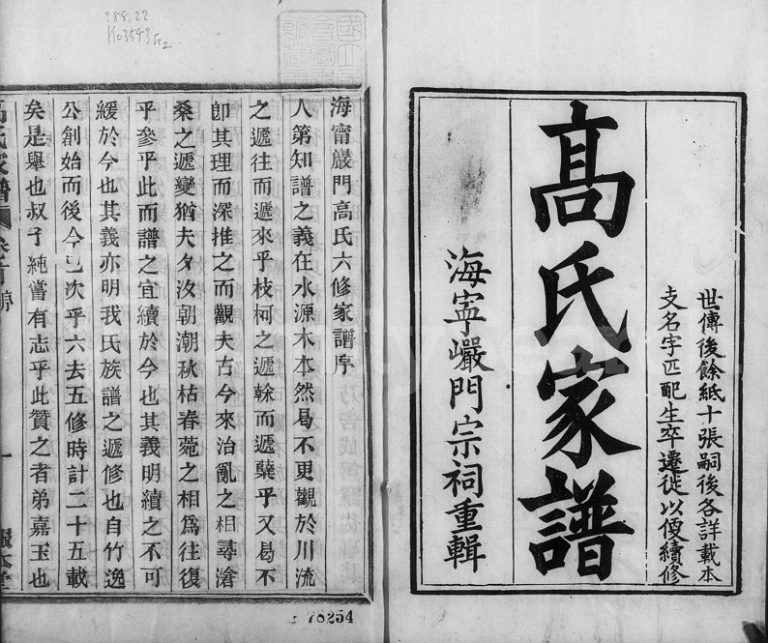 世傳後餘紙十張嗣後各詳載本
支名字匹配生卒遷徙以便續修
髙氏家譜
海寧巖門宗祠重輯
288.22
海甯巖門高氏六修家譜序
人第知譜之義在水源木本然曷不更觀於川流
之遞往而遞來乎枝柯之遞榦而遞櫱乎又曷不
卽其理而深推之而觀夫古今來治亂之相尋滄
桑之遞變猶夫夕汐朝潮秋枯春菀之相爲往復
乎參乎此而譜之宜續於今也其義明續之不可
緩於今也其義亦明我氏族譜之遞修也自竹逸
公創始而後今已次乎六去五修時計二十五載
矣是舉也叔子純嘗有志乎此贊之者弟嘉玉也
高氏家譜
卷首
序
一
78254